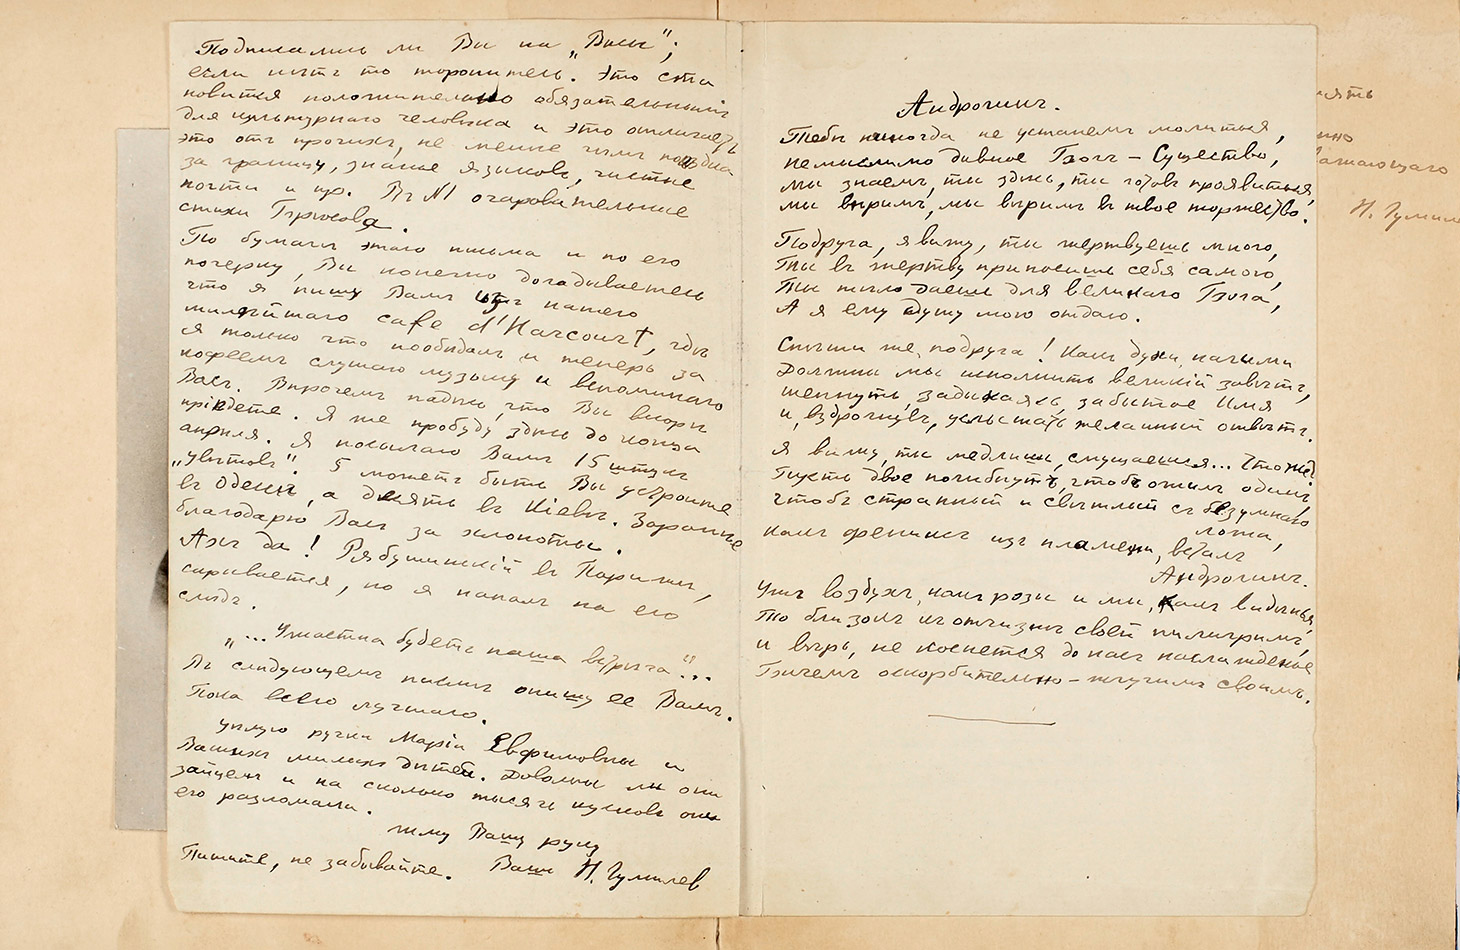 Подписались ли Вы на „Весы“;
если нѣтъ то торопитесь. Это ста
новится положительно обязательнымъ
для культурнаго человѣка и это отличаетъ
это отъ прочихъ, не менѣе чѣмъ поѣздка
за границу, знанье языковъ, чистые
ногти и пр. Въ №1 очаровательные
стихи Брюсова.
По бумагѣ этого письма и по его
почерку, Вы конечно догадываетесь
что я пишу Вамъ изъ нашего
милѣйшаго cafe d'Harcourt, гдѣ
я только что пообѣдалъ и теперь за
кофеемъ слушаю музыку и вспоминаю
Васъ. Впрочемъ надѣюсь, что Вы вскорѣ
пріѣдете. Я же пробуду здѣсь до конца
апрѣля. Я посылаю Вамъ 15 штукъ
„Цвѣтовъ“. 5 можетъ быть Вы устроите
въ Одессѣ, а десять въ Кіевѣ. Заранѣе
благодарю Васъ за хлопоты.
Ахъ да! Рябушинскій въ Парижѣ,
скрывается, но я напалъ на его
слѣдъ.
„...Ужасна будетъ наша встрѣча“...
Въ слѣдующемъ письмѣ опишу ее Вамъ.
Пока всего лучшаго.
Цѣлую ручки Маріи Евфимовны и
Вашихъ милыхъ дѣтей. Довольны ли они
зайцемъ и на сколько тысячъ кусковъ они
его разломали.
жму Вашу руку
Пишите, не забывайте. Вашъ Н. Гумилев
Андрогинъ.
Тебѣ никогда не устанемъ молиться,
Немыслимо дивное Богъ — Существо,
мы знаемъ, ты здѣсь, ты готовъ проявиться,
мы вѣримъ, мы вѣримъ въ твое торжество.
Подруга, я вижу, ты жертвуешь много,
Ты въ жертву приносишь себя самою,
Ты тѣло даешь для великаго Бога,
А я ему душу мою отдаю.
Спѣши же, подруга! Какъ духи, нагими
Должны мы исполнить великій завѣтъ,
шепнуть, задыхаясь, забытое Имя
и, вздрогнувъ, услышать желанный отвѣтъ.
Я вижу, ты медлишь, смущаешься... Что же?
Пусть двое погибнутъ, чтобъ ожилъ одинъ,
чтобъ странный и свѣтлый съ безумнаго
ложа,
какъ фениксъ изъ пламени, всталъ
Андрогинъ.
Ужъ воздухъ, какъ розы и мы, какъ видѣнья,
То близокъ къ отчизнѣ своей пилигримъ,
и вѣрь, не коснется до насъ наслажденье
Бичемъ оскорбительно-жгучимъ своимъ.
Н. Гумил